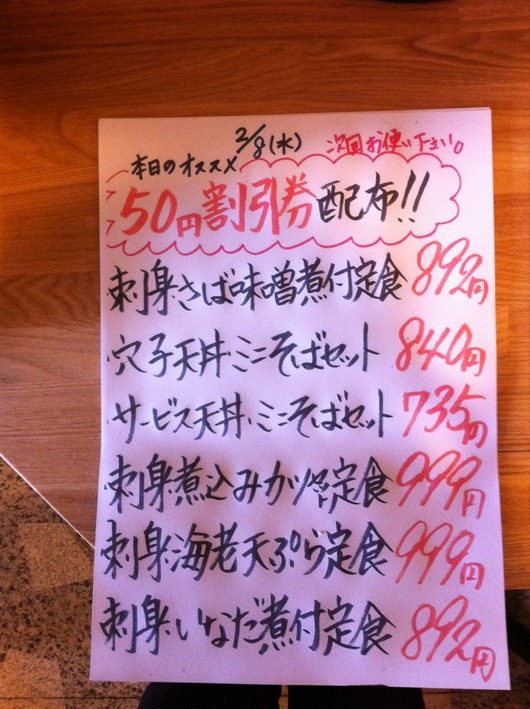 2/8(水)
本日のオススメ
次回お使い下さい。
50円割引券配布!!
刺身さば味噌煮付定食 892円
穴子天丼・ミニそばセット 840円
サービス天丼・ミニそばセット 735円
刺身煮込みカツ定食 999円
刺身海老天ぷら定食 999円
刺身・いなだ煮付定食 892円